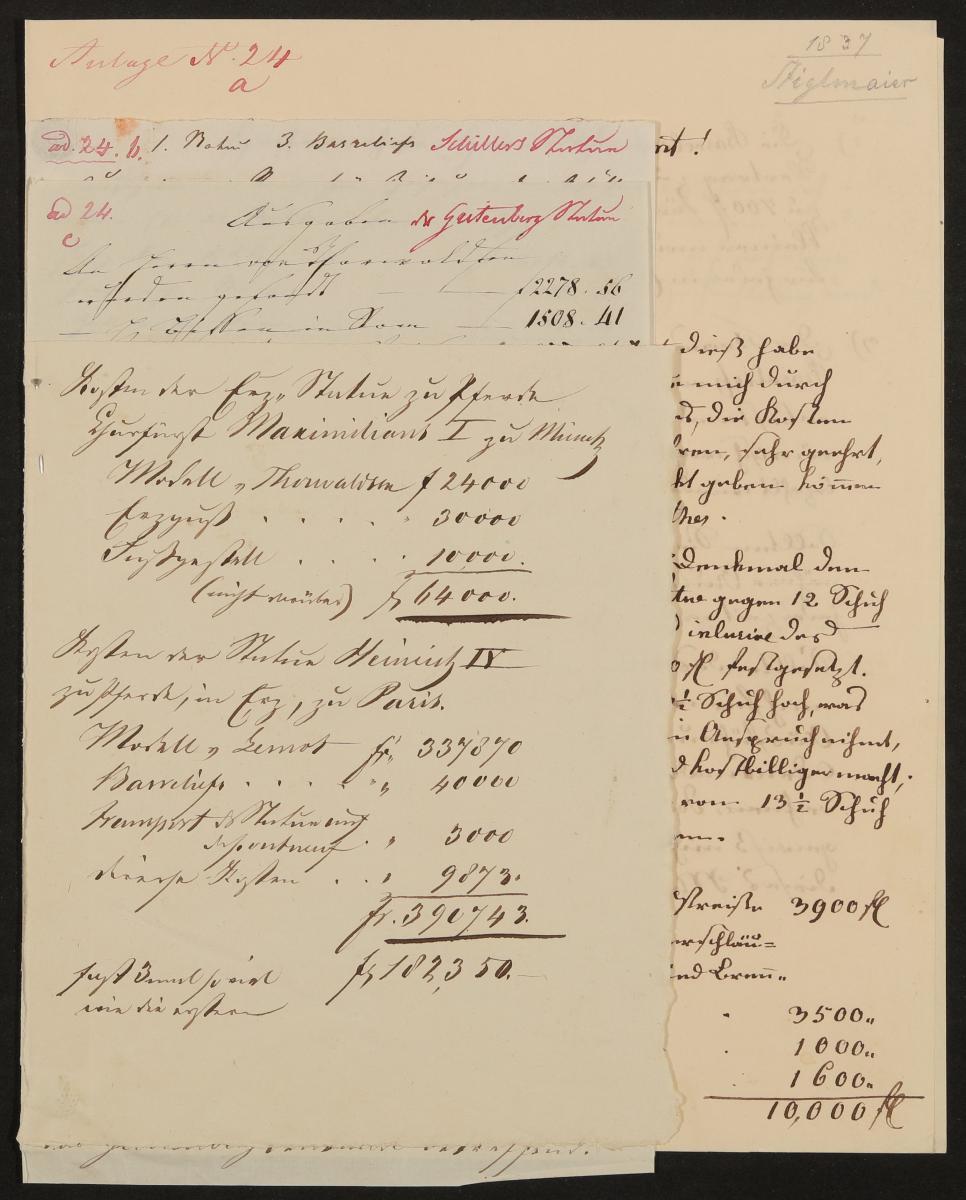 Anlage N. 24
a
1837
Stiglmaier
ad. 24. b. 1. 3. Basreliefs Schillers Statue
ad 24. Ausgaben der Gutenberg Statue
c
An Herrn von Thorwaldsen
wurden gesandt f 2278. 56
in Rom 1508. 41
Kosten der Erz, Statue zu Pferde
Churfürst Maximilians I zu Münch
Modell v Thorwaldsen f 24000
Erzguß . . . . " 30000
Fußgestell . . . . 10,000.
(nicht darüber) f 64000.
Kosten der Statue Heinrich IV
zu Pferde, in Erz, zu Paris.
Modell v Lemot fr. 337870
Basreliefs . . . . " 40000
transport der Statue auf
. " 3000
diverse Kosten . . " 9873.
fr. 390743.
fast 3mal so viel f 182,350.
wie die erstere
dieß habe
mich durch
die Kosten
ren, sehr geehrt,
geben können
Denkmal den
gegen 12 Schuh
inclusive des
fl festgesetzt.
½ Schuh hoch, was
in Anspruch nihmt,
kostbilliger macht;
von 13 ½ Schuh
Preiße 3900 fl
erschläu=
nd Bren"
3500"
1000"
1600"
10,000 fl